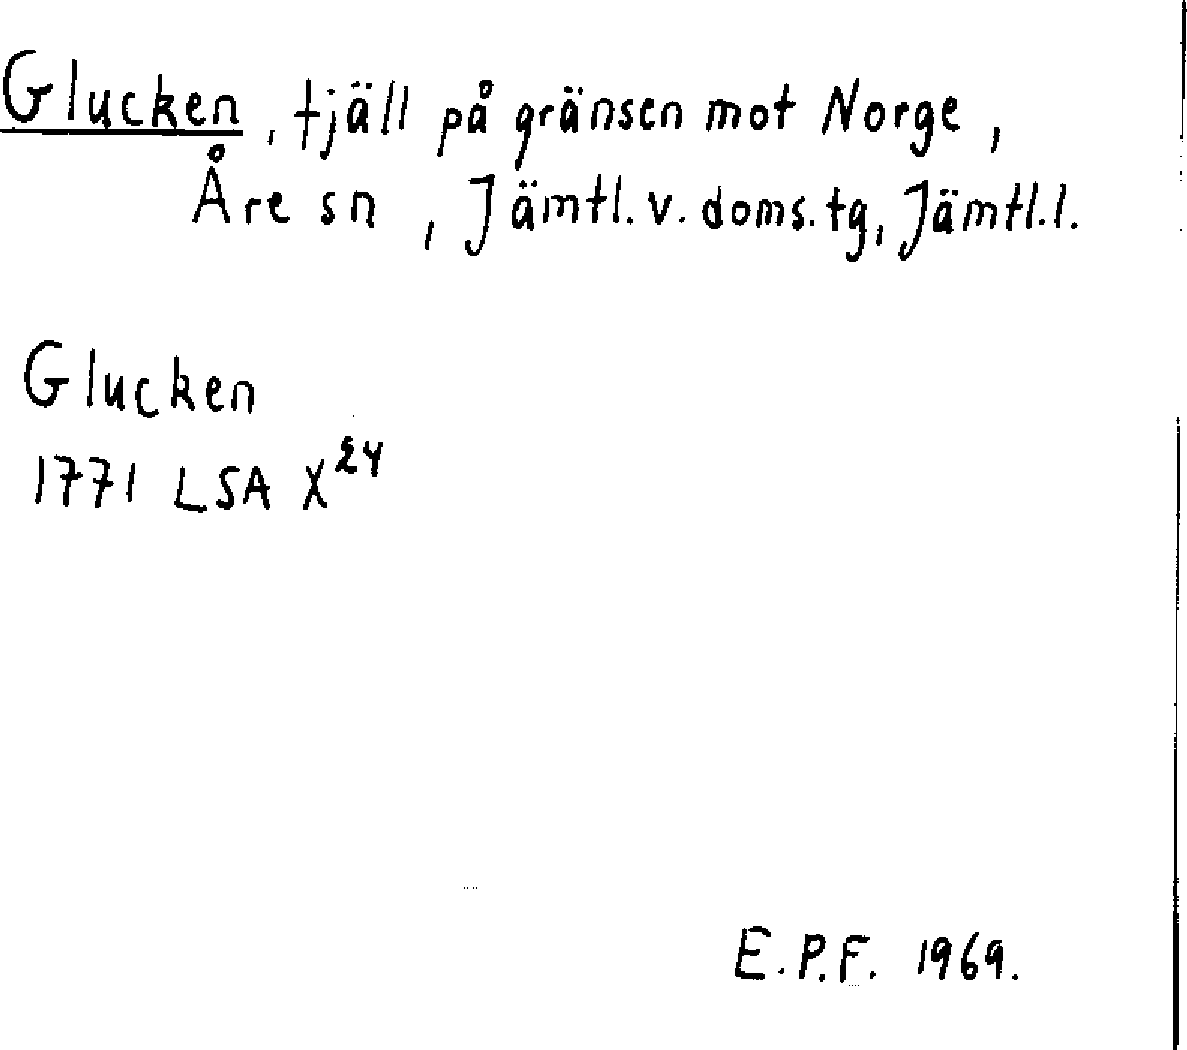 Glucken, fjäll på gränsen mot Norge,
Åre sn, Jämtl. v. doms. tg, Jämtl. l.
Glucken
1771 LSA X²⁴
E.P.F. 1969.